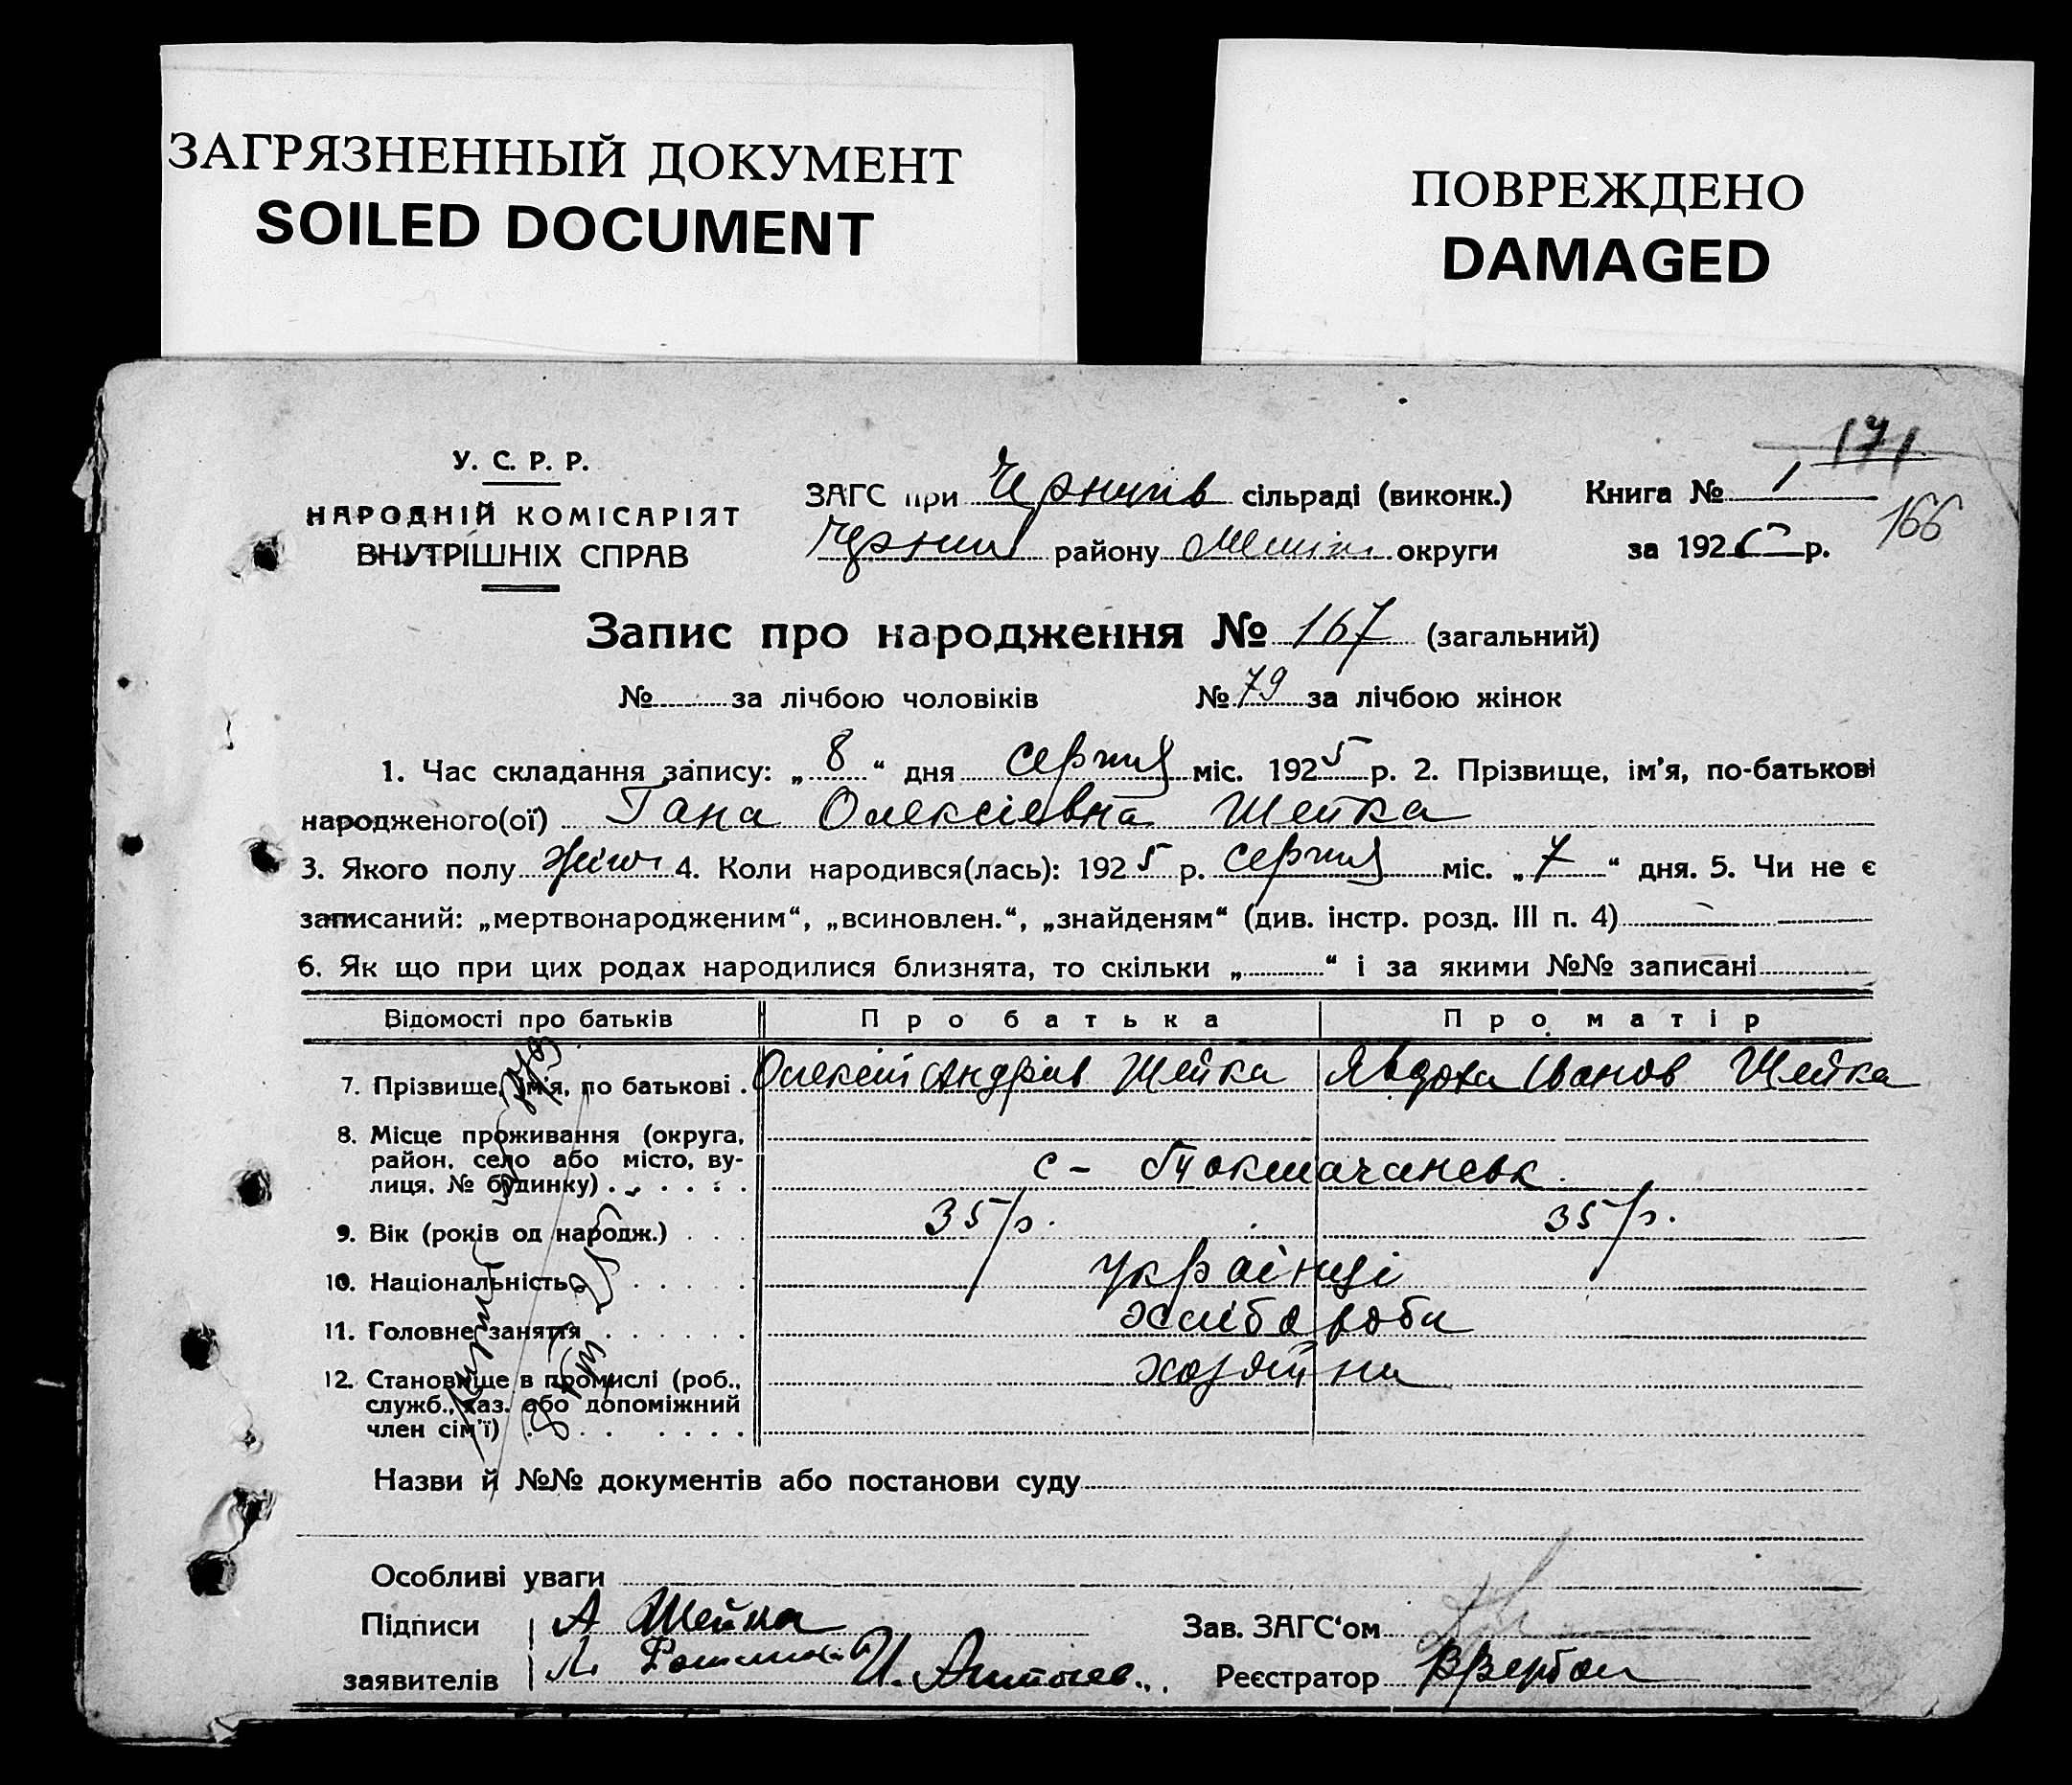 ЗАГРЯЗНЕННЫЙ ДОКУМЕНТ
SOILED DOCUMENT
ПОВРЕЖДЕНО
DAMAGED
171
У. С. Р. Р.
НАРОДНІЙ КОМІСАРІЯТ
ВНУТРІШНІХ СПРАВ
ЗАГС при Чернигів сільраді (виконк.) Книга № 1
району округи за 1925 р. 166
Запис про народження № 167 (загальний)
№ за лічбою чоловіків № 79 за лічбою жінок
1. Час складання запису: „ 8 “ дня серпня міс. 1925 р. 2. Прізвище, ім'я, по-батькові
народженого(ої) Гана Олексіевна Шейка
3. Якого полу жіноч 4. Коли народився(лась): 1925 р. серпня міс. „ 7 “ дня. 5. Чи не є
записаний: „мертвонародженим“, „всиновлен.“, „знайденям“ (див. інстр. розд. III п. 4) —
6. Як що при цих родах народилися близнята, то скільки „ “ і за якими №№ записані
Відомості про батьків Про батька Про матір
7. Прізвище, ім'я, по батькові . Олексій Андрів Шейка Явдоха Іванов Шейка
8. Місце проживання (округа,
район, село або місто, ву-
лиця, № будинку) . . . . . . с -
9. Вік (років од народж.) . . . 35 р. 35 р.
10. Національність . . . . . українці
11. Головне заняття . . . . . . хлібороби
12. Становище в промислі (роб., хозяйни
служб., хаз. або допоміжний
член сім'ї) . . . . . . .
Назви й №№ документів або постанови суду
Особливі уваги
Підписи А Шейка Зав. ЗАГС'ом
заявителів Реєстратор